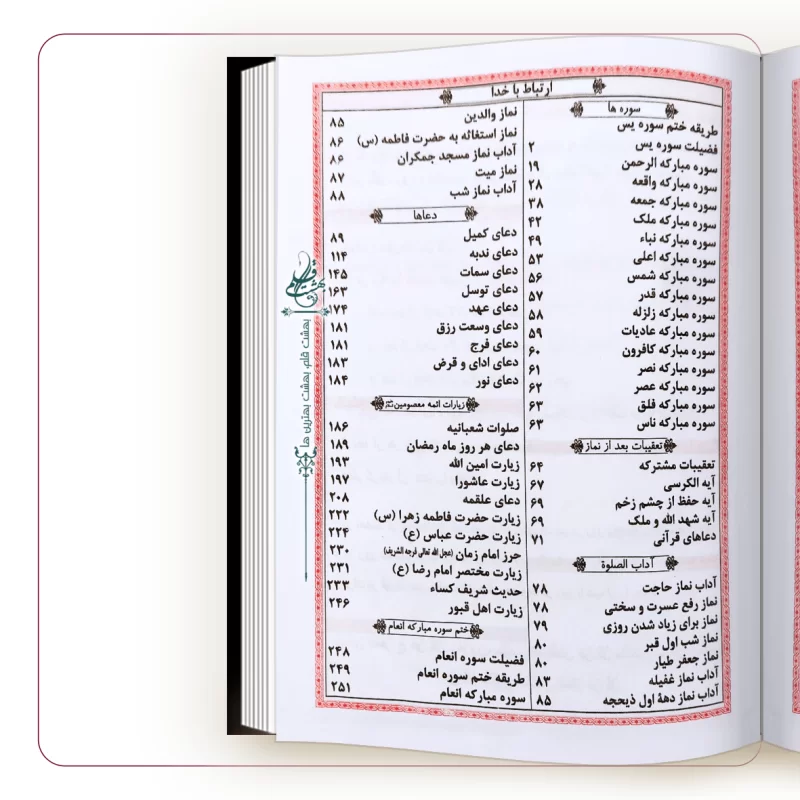 ارتباط با خدا
سوره ها
طریقه ختم سوره یس
فضیلت سوره یس ۲
سوره مبارکه الرحمن ۱۹
سوره مبارکه واقعه ۲۸
سوره مبارکه جمعه ۳۸
سوره مبارکه ملک ۴۲
سوره مبارکه نباء ۴۹
سوره مبارکه اعلی ۵۳
سوره مبارکه شمس ۵۶
سوره مبارکه قدر ۵۷
سوره مبارکه زلزله ۵۸
سوره مبارکه عادیات ۵۹
سوره مبارکه کافرون ۶۰
سوره مبارکه نصر ۶۱
سوره مبارکه عصر ۶۲
سوره مبارکه فلق ۶۳
سوره مبارکه ناس ۶۳
تعقیبات بعد از نماز
تعقیبات مشترکه ۶۴
آیه الکرسی ۶۷
آیه حفظ از چشم زخم ۶۹
آیه شهد الله و ملک ۶۹
دعاهای قرآنی ۷۱
آداب الصلوة
آداب نماز حاجت ۷۸
نماز رفع عسرت و سختی ۷۸
نماز برای زیاد شدن روزی ۷۹
نماز شب اول قبر ۸۰
نماز جعفر طیار ۸۰
آداب نماز غفیله ۸۳
آداب نماز دههٔ اول ذیحجه ۸۵
نماز والدین ۸۵
نماز استغاثه به حضرت فاطمه (س) ۸۶
آداب نماز مسجد جمکران ۸۶
نماز میت ۸۷
آداب نماز شب ۸۸
دعاها
دعای کمیل ۸۹
دعای ندبه ۱۱۴
دعای سمات ۱۴۵
دعای توسل ۱۶۳
دعای عهد ۱۷۴
دعای وسعت رزق ۱۸۱
دعای فرج ۱۸۱
دعای ادای و قرض ۱۸۳
دعای نور ۱۸۴
زیارات ائمه معصومین
صلوات شعبانیه ۱۸۶
دعای هر روز ماه رمضان ۱۸۹
زیارت امین الله ۱۹۳
زیارت عاشورا ۱۹۷
دعای علقمه ۲۰۸
زیارت حضرت فاطمه زهرا (س) ۲۲۲
زیارت حضرت عباس (ع) ۲۲۴
حرز امام زمان (عجل الله تعالی فرجه الشریف) ۲۳۰
زیارت مختصر امام رضا (ع) ۲۳۱
حدیث شریف کساء ۲۳۳
زیارت اهل قبور ۲۴۶
ختم سوره مبارکه انعام
فضیلت سوره انعام ۲۴۸
طریقه ختم سوره انعام ۲۴۹
سوره مبارکه انعام ۲۵۱
بهشت قلم
بهشت قلم، بهشت بهترین ها